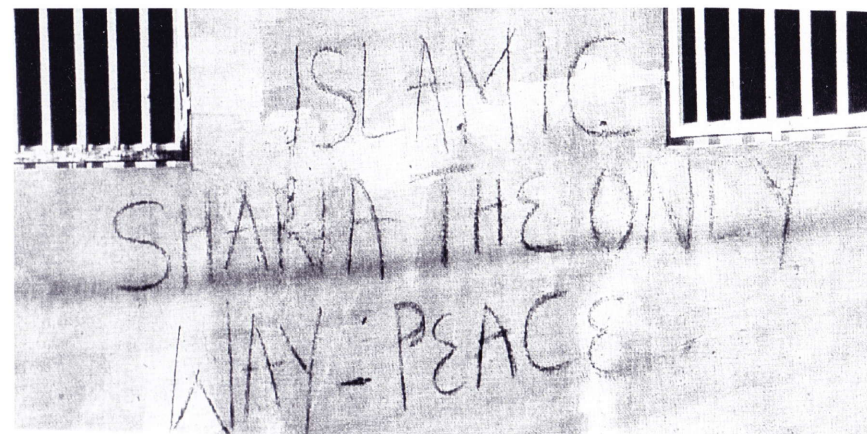 ISLAMIC
SHARIA THE ONLY
WAY-PEACE